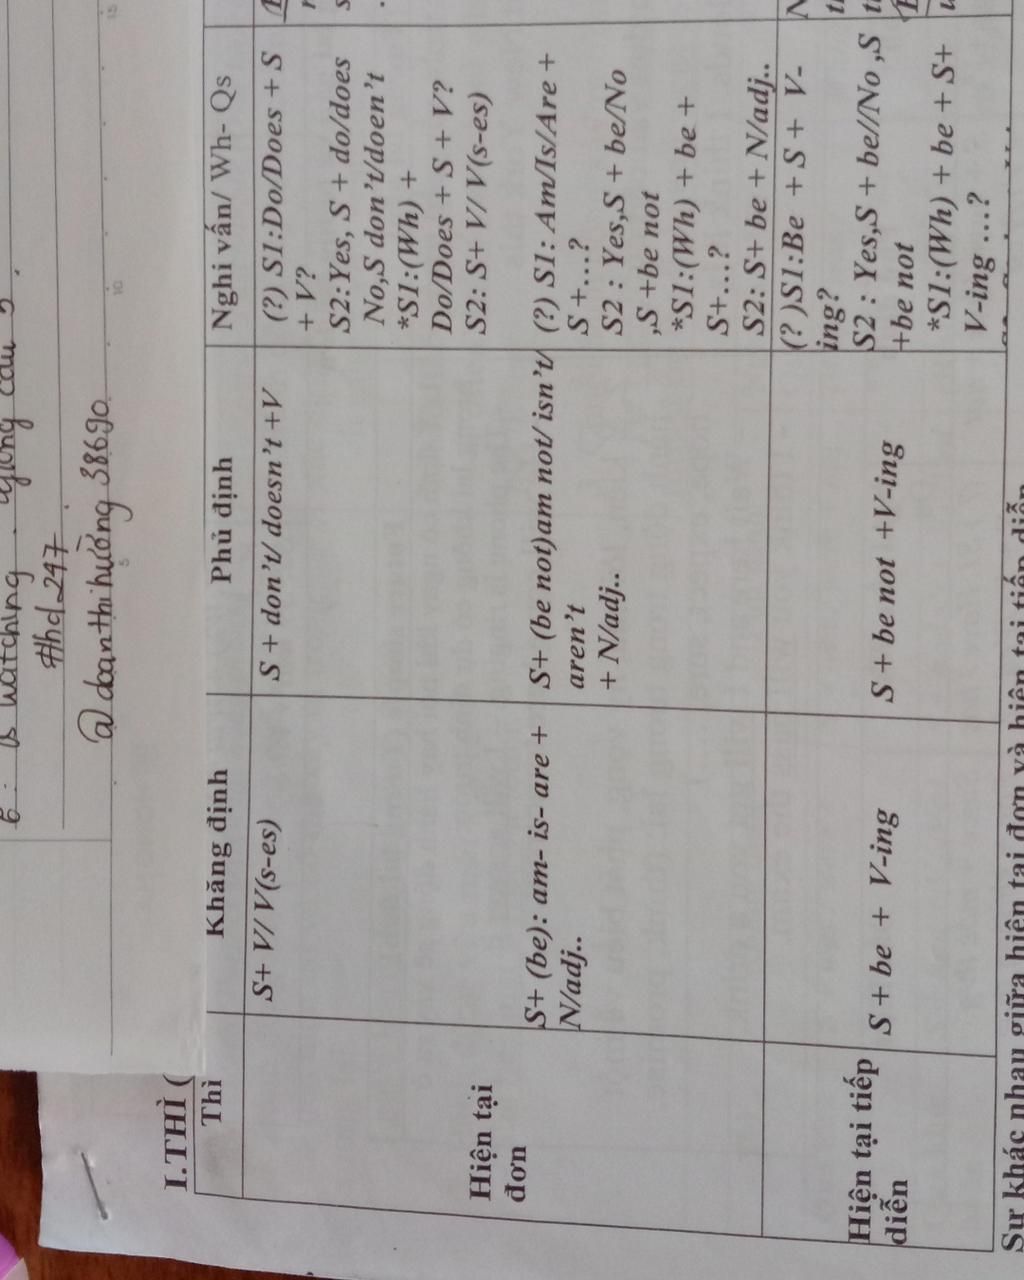 6. is watching
#hd_247
@doanthihường38690
I.THÌ (
Thì
Khăng định
Phủ định
Nghi vấn/ Wh- Qs
Hiện tại
đơn
S+ V/ V(s-es)
S+ (be): am- is- are +
N/adj..
S + don't/ doesn't +V
S+ (be not)am not/ isn't/
aren't
+ N/adj..
(?) S1:Do/Does + S
+ V?
S2:Yes, S + do/does
No,S don't/doen't
*S1:(Wh) +
Do/Does + S + V?
S2: S+ V/ V(s-es)
(?) S1: Am/Is/Are +
S +...?
S2 : Yes,S + be/No
,S +be not
*S1:(Wh) + be +
S+...?
S2: S+ be + N/adj..
Hiện tại tiếp
diễn
S + be + V-ing
S + be not +V-ing
(? )S1:Be + S + V-
ing?
S2 : Yes,S + be//No ,S
+be not
*S1:(Wh) + be + S+
V-ing ...?
Sự khác nhau giữa hiện tại đơn và hiện tại tiếp diễn